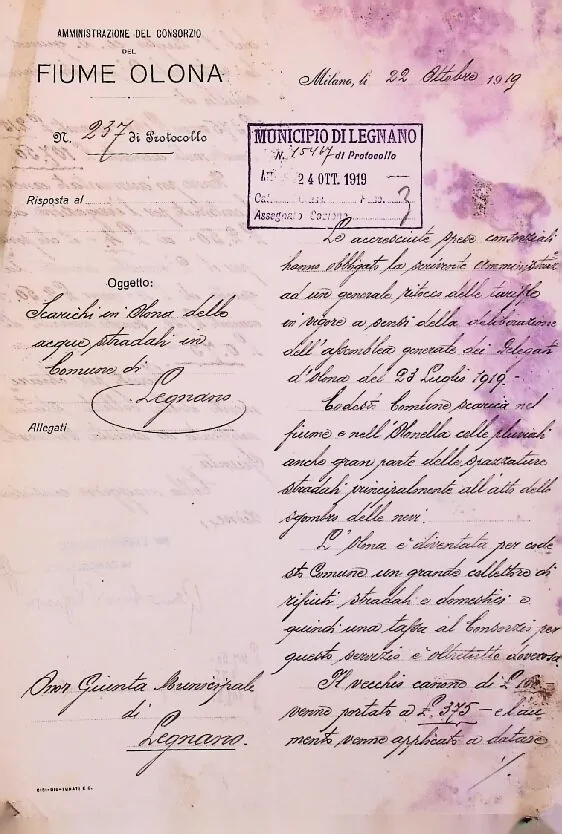 AMMINISTRAZIONE DEL CONSORZIO
DEL
FIUME OLONA
Milano, li 22 Ottobre 1919
N. 237 di Protocollo
MUNICIPIO DI LEGNANO
N. 15467 di Protocollo
24 OTT. 1919
Assegnato
3
Risposta al
Oggetto:
Scarichi in Olona delle
acque stradali in
Comune di
Legnano
Allegati
Le accresciute spese consorziali
hanno obbligato la scrivente
ad un generale ritocco delle tariffe
in vigore a sensi della deliberazione
dell'assemblea generale dei Delegati
d'Olona del 23 Luglio 1919.-
Codesto Comune scarica nel
fiume e nell'Olonella colle pluviali
anche gran parte delle spazzature
stradali principalmente all'atto dello
sgombro delle nevi.
L'Olona è diventata per code
sto Comune un grande collettore di
rifiuti stradali e domestici e
quindi una tassa al Consorzio per
questo servizio è oltretutto doverosa.
Il vecchio canone di £
venne portato a £. 375 - e l'au
mento venne applicato a datare
./.
Onor Giunta Municipale
di
Legnano.